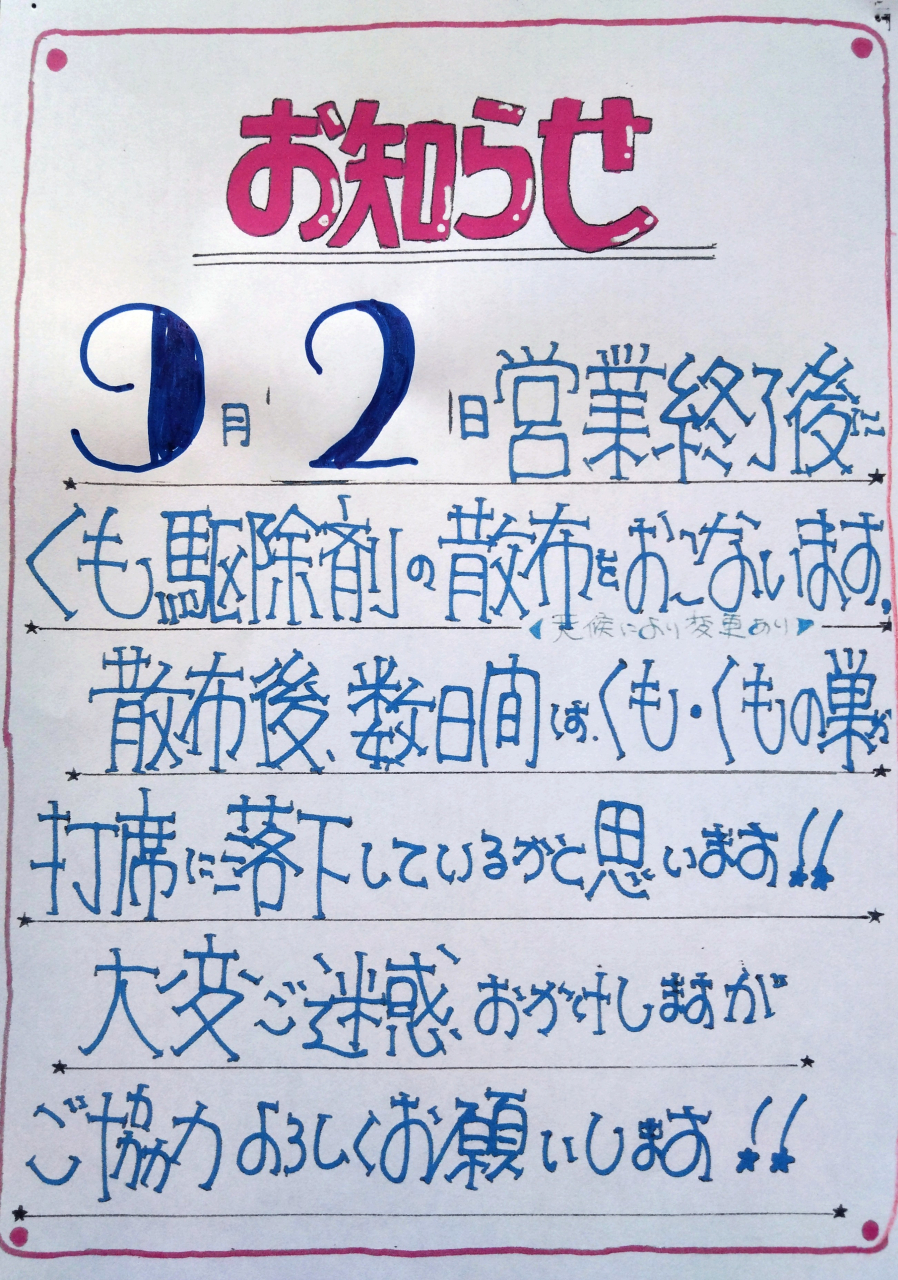 お知らせ
9月2日営業終了後に
くも駆除剤の散布をおこないます。
<天候により変更あり>
散布後、数日間は、くも・くもの巣が
打席に落下しているかと思います!!
大変ご迷惑おかけしますが
ご協力よろしくお願いします!!